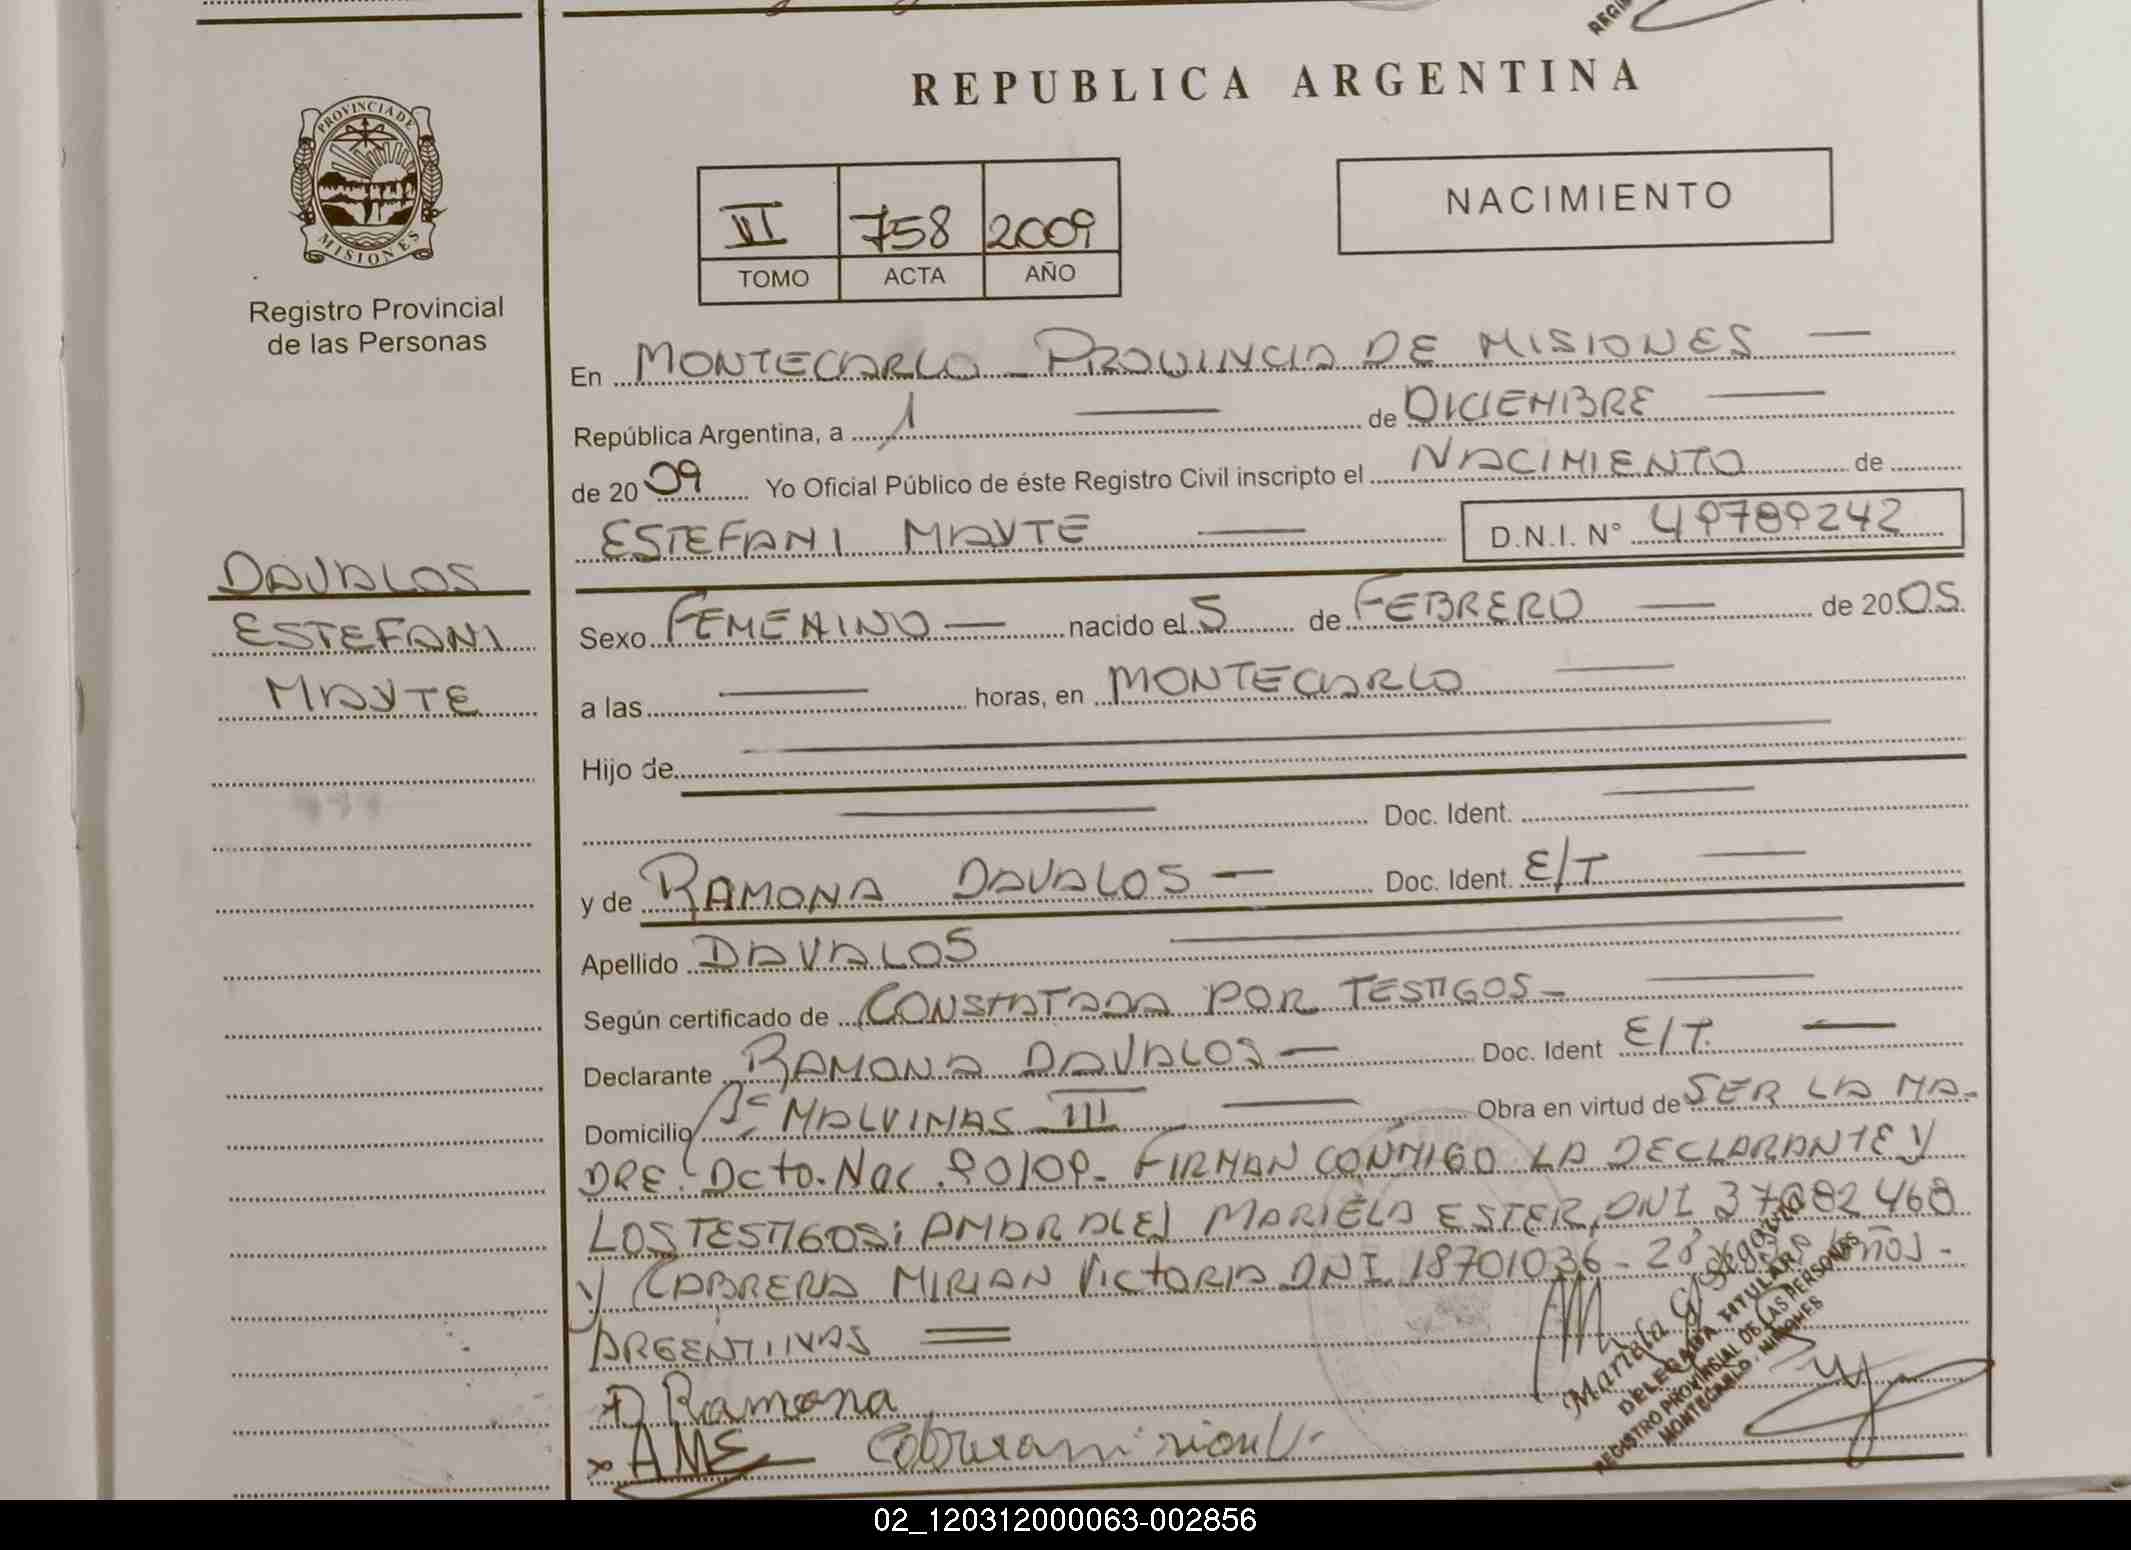 REPUBLICA ARGENTINA
PROVINCIA DE
MISIONES
Registro Provincial
de las Personas
NACIMIENTO
VI 758 2009
TOMO ACTA AÑO
En MONTECARLO - PROVINCIA DE MISIONES —
República Argentina, a 1 — de DICIEMBRE —
de 2009 Yo Oficial Público de éste Registro Civil inscripto el NACIMIENTO de
ESTEFANI MAYTE — D.N.I. N° 49789242
DAVALOS
ESTEFANI
MAYTE
Sexo FEMENINO — nacido el 5 de FEBRERO — de 2005
a las — horas, en MONTECARLO —
Hijo de —
— Doc. Ident. —
y de RAMONA DAVALOS — Doc. Ident. E/T —
Apellido DAVALOS —
Según certificado de CONSTATADA POR TESTIGOS - —
Declarante RAMONA DAVALOS — Doc. Ident E/T. —
Domicilio Bº MALVINAS III — Obra en virtud de SER LA MA-
DRE. Dcto. Nac. 90/09- FIRMAN CONMIGO LA DECLARANTE Y
LOS TESTIGOS: AMARAL MARIELA ESTER, DNI
Y CABRERA MIRIAN VICTORIA DNI 18701036 - años -
ARGENTINAS =
D Ramona
x AME Cabrera mirian V.
Mariela
DELEGADA TITULAR
REGISTRO PROVINCIAL DE LAS PERSONAS
MONTECARLO - MISIONES
02_120312000063-002856